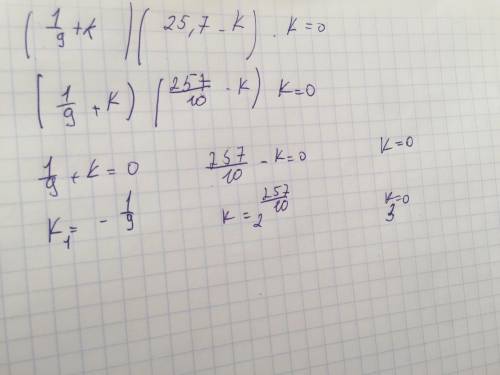 (1/9 + K)(25,7 - K) · K = 0
(1/9 + K)(257/10 - K) K = 0
1/9 + K = 0    257/10 - K = 0    K = 0
K₁ = - 1/9    K₂ = 257/10    K₃ = 0